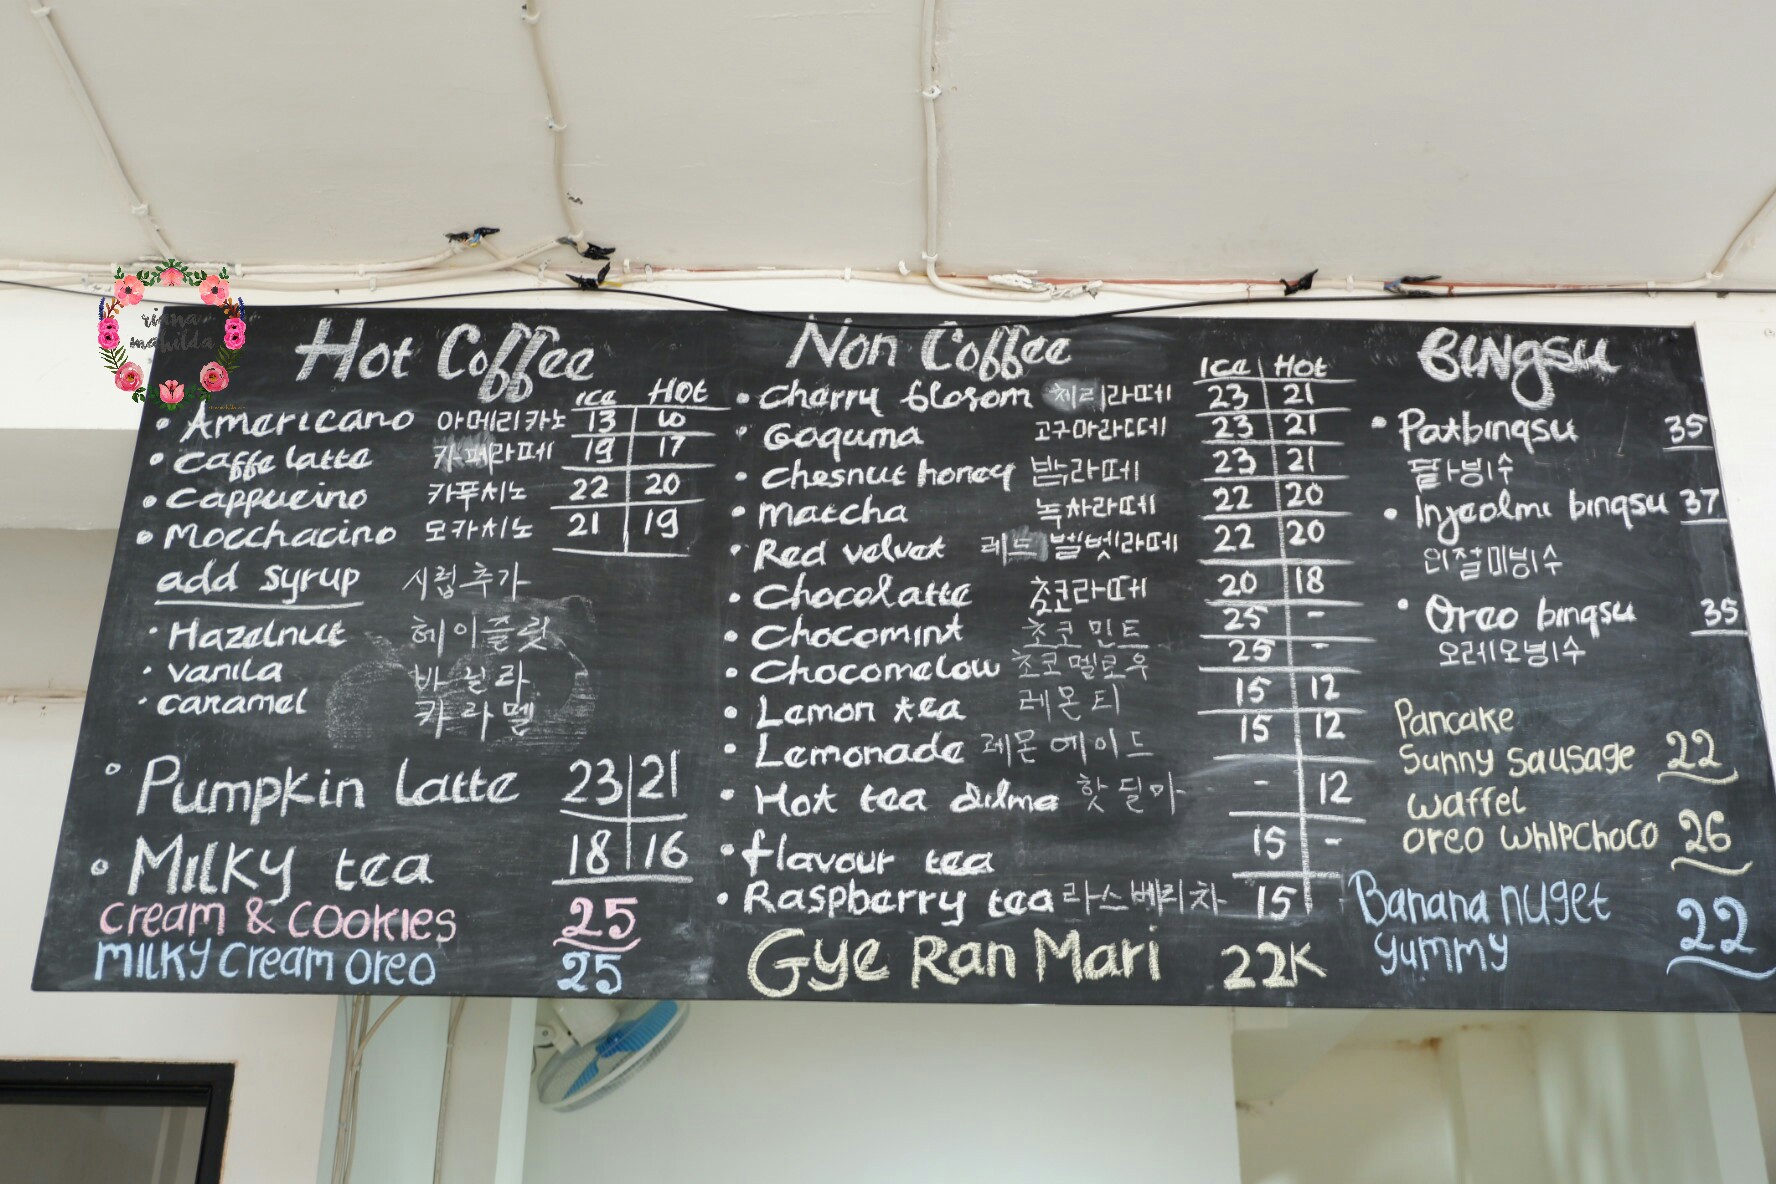 riana
mahilda
Hot Coffee
Ice Hot
Americano 아메리카노 13
Caffe latte 카페라떼 19 17
Cappucino 카푸치노 22 20
Mocchacino 모카치노 21 19
add syrup 시럽추가
Hazelnut 헤이즐럿
vanila 바닐라
caramel 카라멜
Pumpkin latte 23 21
Milky tea 18 16
Cream & Cookies 25
Milky Cream Oreo 25
Non Coffee
Ice Hot
Cherry blosom 체리라떼 23 21
Goguma 고구마라떼 23 21
Chesnut honey 밤라떼 23 21
Matcha 녹차라떼 22 20
Red velvet 레드벨벳라떼 22 20
Chocolatte 초코라떼 20 18
Chocomint 초코민트 25 -
Chocomelow 초코멜로우 25 -
Lemon tea 레몬티 15 12
Lemonade 레몬에이드 15 12
Hot tea dilma 핫딜마 - 12
flavour tea 15 -
Raspberry tea 라스베리차 15
Gye Ran Mari 22K
Bingsu
Patbingsu 35
팥빙수
Injeolmi bingsu 37
인절미빙수
Oreo bingsu 35
오레오빙수
Pancake
Sunny sausage 22
waffel
oreo whipchoco 26
Banana nuget
yummy 22